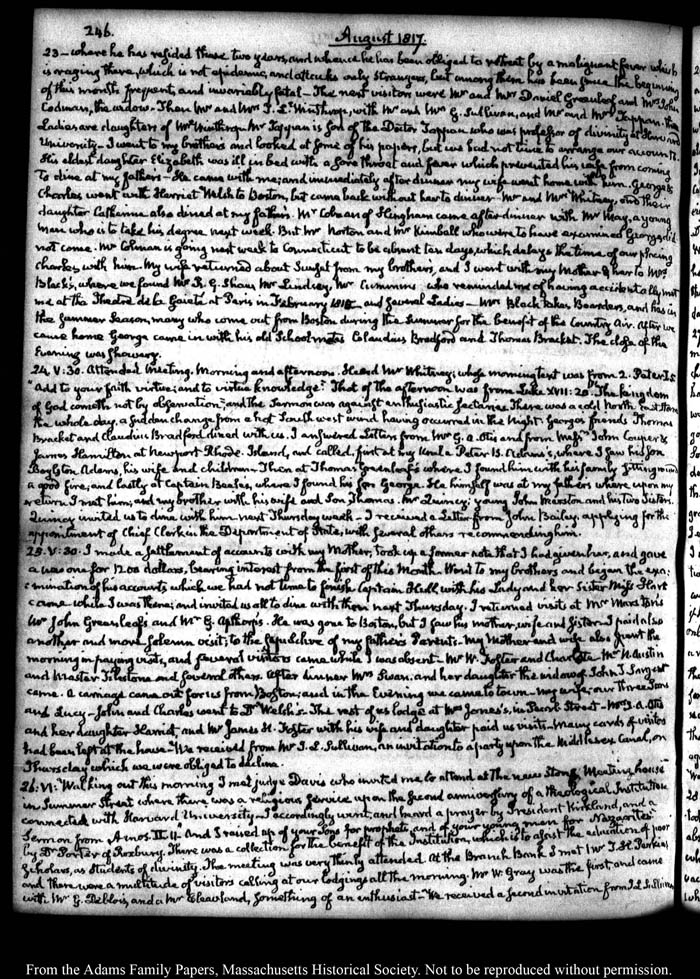 246.
August 1817.
23 – where he has resided these two years, and whence he has been obliged to retreat by a malignant fever which
is raging there, which is not epidemic, and attacks only strangers, but among them has been since the beginning
of this month frequent, and invariably fatal – The next visitors were Mr and Mrs Daniel Greenleaf and Mrs John
Codman, the widow. Then Mr and Mrs T. L. Winthrop, with Mr and Mrs G. Sullivan, and Mr and Mrs Tappan – the
Ladies are daughters of Mr Winthrop. Mr Tappan is Son of the Doctor Tappan who was professor of divinity at Harvard
University – I went to my brother's and looked at some of his papers, but we had not time to arrange our accounts.
His eldest daughter Elizabeth was ill in bed with a sore throat and fever which prevented his wife from coming
To dine at my father's – He came with me; and immediately after dinner my wife went home with him. George &
Charles went with Harriet Welsh to Boston, but came back without her to dinner. Mr and Mrs Whitney, and their
daughter Catherine also dined at my father's. Mr Colman of Hingham came after dinner with Mr May, a young
man who is to take his degree next week. But Mr Norton and Mr Kimball who were to have examined George did
not come. Mr Colman is going next week to Connecticut to be absent ten days, which delays the time of our placing
Charles with him. My wife returned about Sunset from my brother's, and I went with my Mother & her to Mrs
Black's, where we found Mr R. G. Shaw, Mr Lindsey, Mr Cummins who reminded me of having accidentally met
me at the Theatre de la Gaieté at Paris in February 1815 and several Ladies – Mrs Black takes Boarders, and has in
the Summer Season, many who come out from Boston during the Summer for the benefit of the Country Air. After we
came home George came in with his old Schoolmates Claudius Bradford and Thomas Bracket. The close of the
Evening was showery.
24. V:30. Attended Meeting. Morning and afternoon. Heard Mr Whitney; whose morning text was from 2. Peter I.5
"Add to your faith virtue; and to virtue knowledge." That of the afternoon was from Luke XVII: 20. "The kingdom
of God cometh not by observation," and the Sermon was against enthusiastic sectaries. There was a cold North East Storm
the whole day, a sudden change from a hot South west wind having occurred in the Night. George's friends Thomas
Bracket and Claudius Bradford dined with us. I answered Letters from Mr G. A. Otis and from Messrs John Cowper &
James Hamilton at Newport Rhode Island, and called, first at my Uncle Peter B. Adams's, where I saw his Son
Boylston Adams, his wife and children. Then at Thomas Greenleaf's where I found him with his family sitting round
a good fire; and lastly at Captain Beale's, where I found his Son George. He himself was at my father's where upon my
return I met him; and my brother with his wife and Son Thomas. Mr Quincy, young John Marston and his two Sisters.
Quincy invited us to dine with him next Thursday week – I received a Letter from John Bailey, applying for the
appointment of Chief Clerk in the Department of State; with several others recommending him.
25. V:30. I made a settlement of accounts with my Mother, took up a former note that I had given her, and gave
a new one for 1200 dollars, bearing interest from the first of this Month. Went to my brother's and began the exa:
mination of his accounts which we had not time to finish. Captain Hull, with his Lady and her Sister Miss Hart
came while I was there; and invited us all to dine with them next Thursday. I returned visits at Mr Marston's
Mr John Greenleaf's and Mr G. Apthorp's. He was gone to Boston, but I saw his mother, wife and Sister. I paid also
another and more solemn visit; to the sepulchre of my father's Parents. My Mother and wife also spent the
morning in paying visits, and several visitors came while I was absent – Mr W. Foster and Charlotte. Mr N. Austin
and Master Tilestone and several others. After dinner Mrs Swan, and her daughter the widow of John T. Sargent
came. A carriage came out for us from Boston; and in the Evening we came to town. My wife, our three Sons
and Lucy – John and Charles went to Dr Welsh's. The rest of us lodge at Mrs Jones's, in Pearl Street – Mrs J. A. Otis
and her daughter Harriet, and Mr James H. Foster with his wife and daughter paid us visits – Many cards of visitors
had been left at the house – We received from Mr J. L. Sullivan, an invitation to a party upon the Middlesex Canal, on
Thursday, which we were obliged to decline.
26. VI. Walking out this morning I met Judge Davis who invited me to attend at the new Stone Meeting house
in Summer Street where there was a religious Service upon the second anniversary of a Theological Institution
connected with Harvard University – I accordingly went, and heard a prayer by President Kirkland, and a
Sermon from Amos II. 11. And I raised up of your Sons for prophets, and of your young men for Nazarites.
by Dr Porter of Roxbury. There was a collection for the benefit of the Institution, which is to assist the education of poor
Scholars, as Students of divinity. The meeting was very thinly attended. At the Branch Bank I met Mr T. H. Perkins
and there were a multitude of visitors calling at our lodgings all the morning. Mr W. Gray was the first and came
with Mr G. Deblois, and a Mr Cleaveland, something of an enthusiast – We received a second invitation from J. L. Sullivan
From the Adams Family Papers, Massachusetts Historical Society. Not to be reproduced without permission.